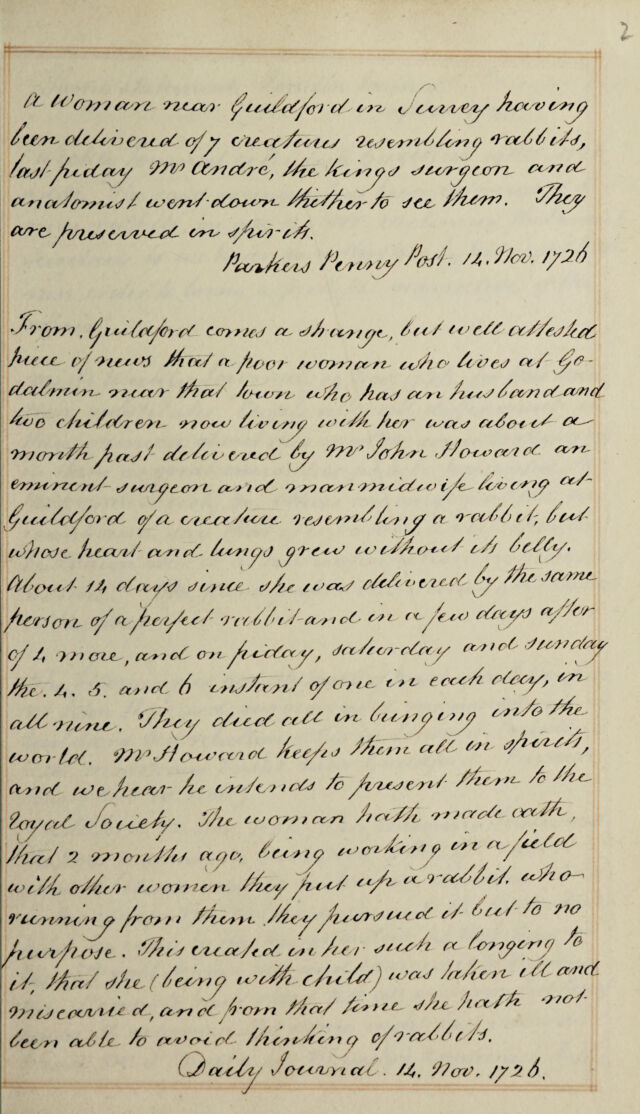 2
A woman near Guildford in Surrey having
been delivered of 7 creatures resembling rabbits,
last friday Mr André, the kings surgeon and
anatomist went down thither to see them. They
are preserved in spirits.
Parkers Penny Post. 14. Nov. 1726
From Guildford comes a strange, but well attested
piece of news that a poor woman who lives at Go-
dalmin near that town who has an husband and
two children now living with her was about a
month past delivered by Mr John Howard an
eminent surgeon and manmidwife living at
Guildford of a creature resembling a rabbit, but
whose heart and lungs grew without its belly.
About 14 days since she was delivered by the same
person of a perfect rabbit and in a few days after
of 4 more, and on friday, saturday and sunday
the. 4. 5. and 6 instant of one in each day, in
all nine. They died all in bringing into the
world. Mr Howard keeps them all in spirits,
and we hear he intends to present them to the
Royal Society. The woman hath made oath,
that 2 months ago, being working in a field
with other women they put up a rabbit, who
running from them they pursued it but to no
purpose. This created in her such a longing to
it, that she (being with child) was taken ill and
miscarried, and from that time she hath not
been able to avoid thinking of rabbits.
Daily Journal. 14. Nov. 1726.